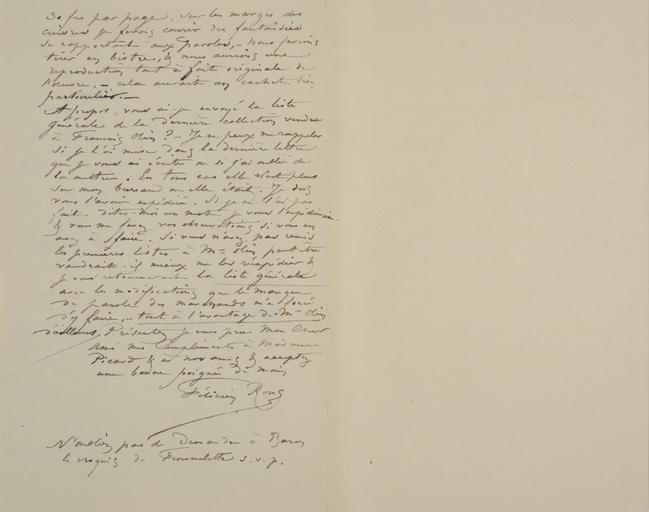 30 frs par page, sur les marges des
cuivres je ferais courir des fantaisies
se rapportant aux paroles, – nous ferions
tirer en bistre, & nous aurions une
reproduction tout à fait originale de
l'œuvre, – cela aurait un cachet très
particulier. –
A propos, vous ai-je envoyé la liste
générale de la dernière collection vendue
à François Olin ? – Je ne peux me rappeler
si je l'ai mise dans la dernière lettre
que je vous ai écrite ou si j'ai oublié de
la mettre. En tous cas elle n'est plus
sur mon bureau où elle était. Je dois
vous l'avoir expédiée. Si je ne l'ai pas
fait dites-moi un mot je vous l'expédierai
& vous me ferez vos observations si vous en
avez à faire. Si vous n'avez pas remis
les premières listes à Mr Olin peut-être
vaudrait-il mieux me les réexpédier &
je vous retournerai la liste générale
avec les modifications que le manque
de parole des marchands m'a forcé
d'y faire, – tout à l'avantage de Mr Olin
d'ailleurs. Présentez je vous prie Mon Cher
Ami mes compliments à Madame
Picard & à nos amis & acceptez
une bonne poignée de main
Félicien Rops
N'oubliez pas de demander à Baron
le croquis de s.v.p.